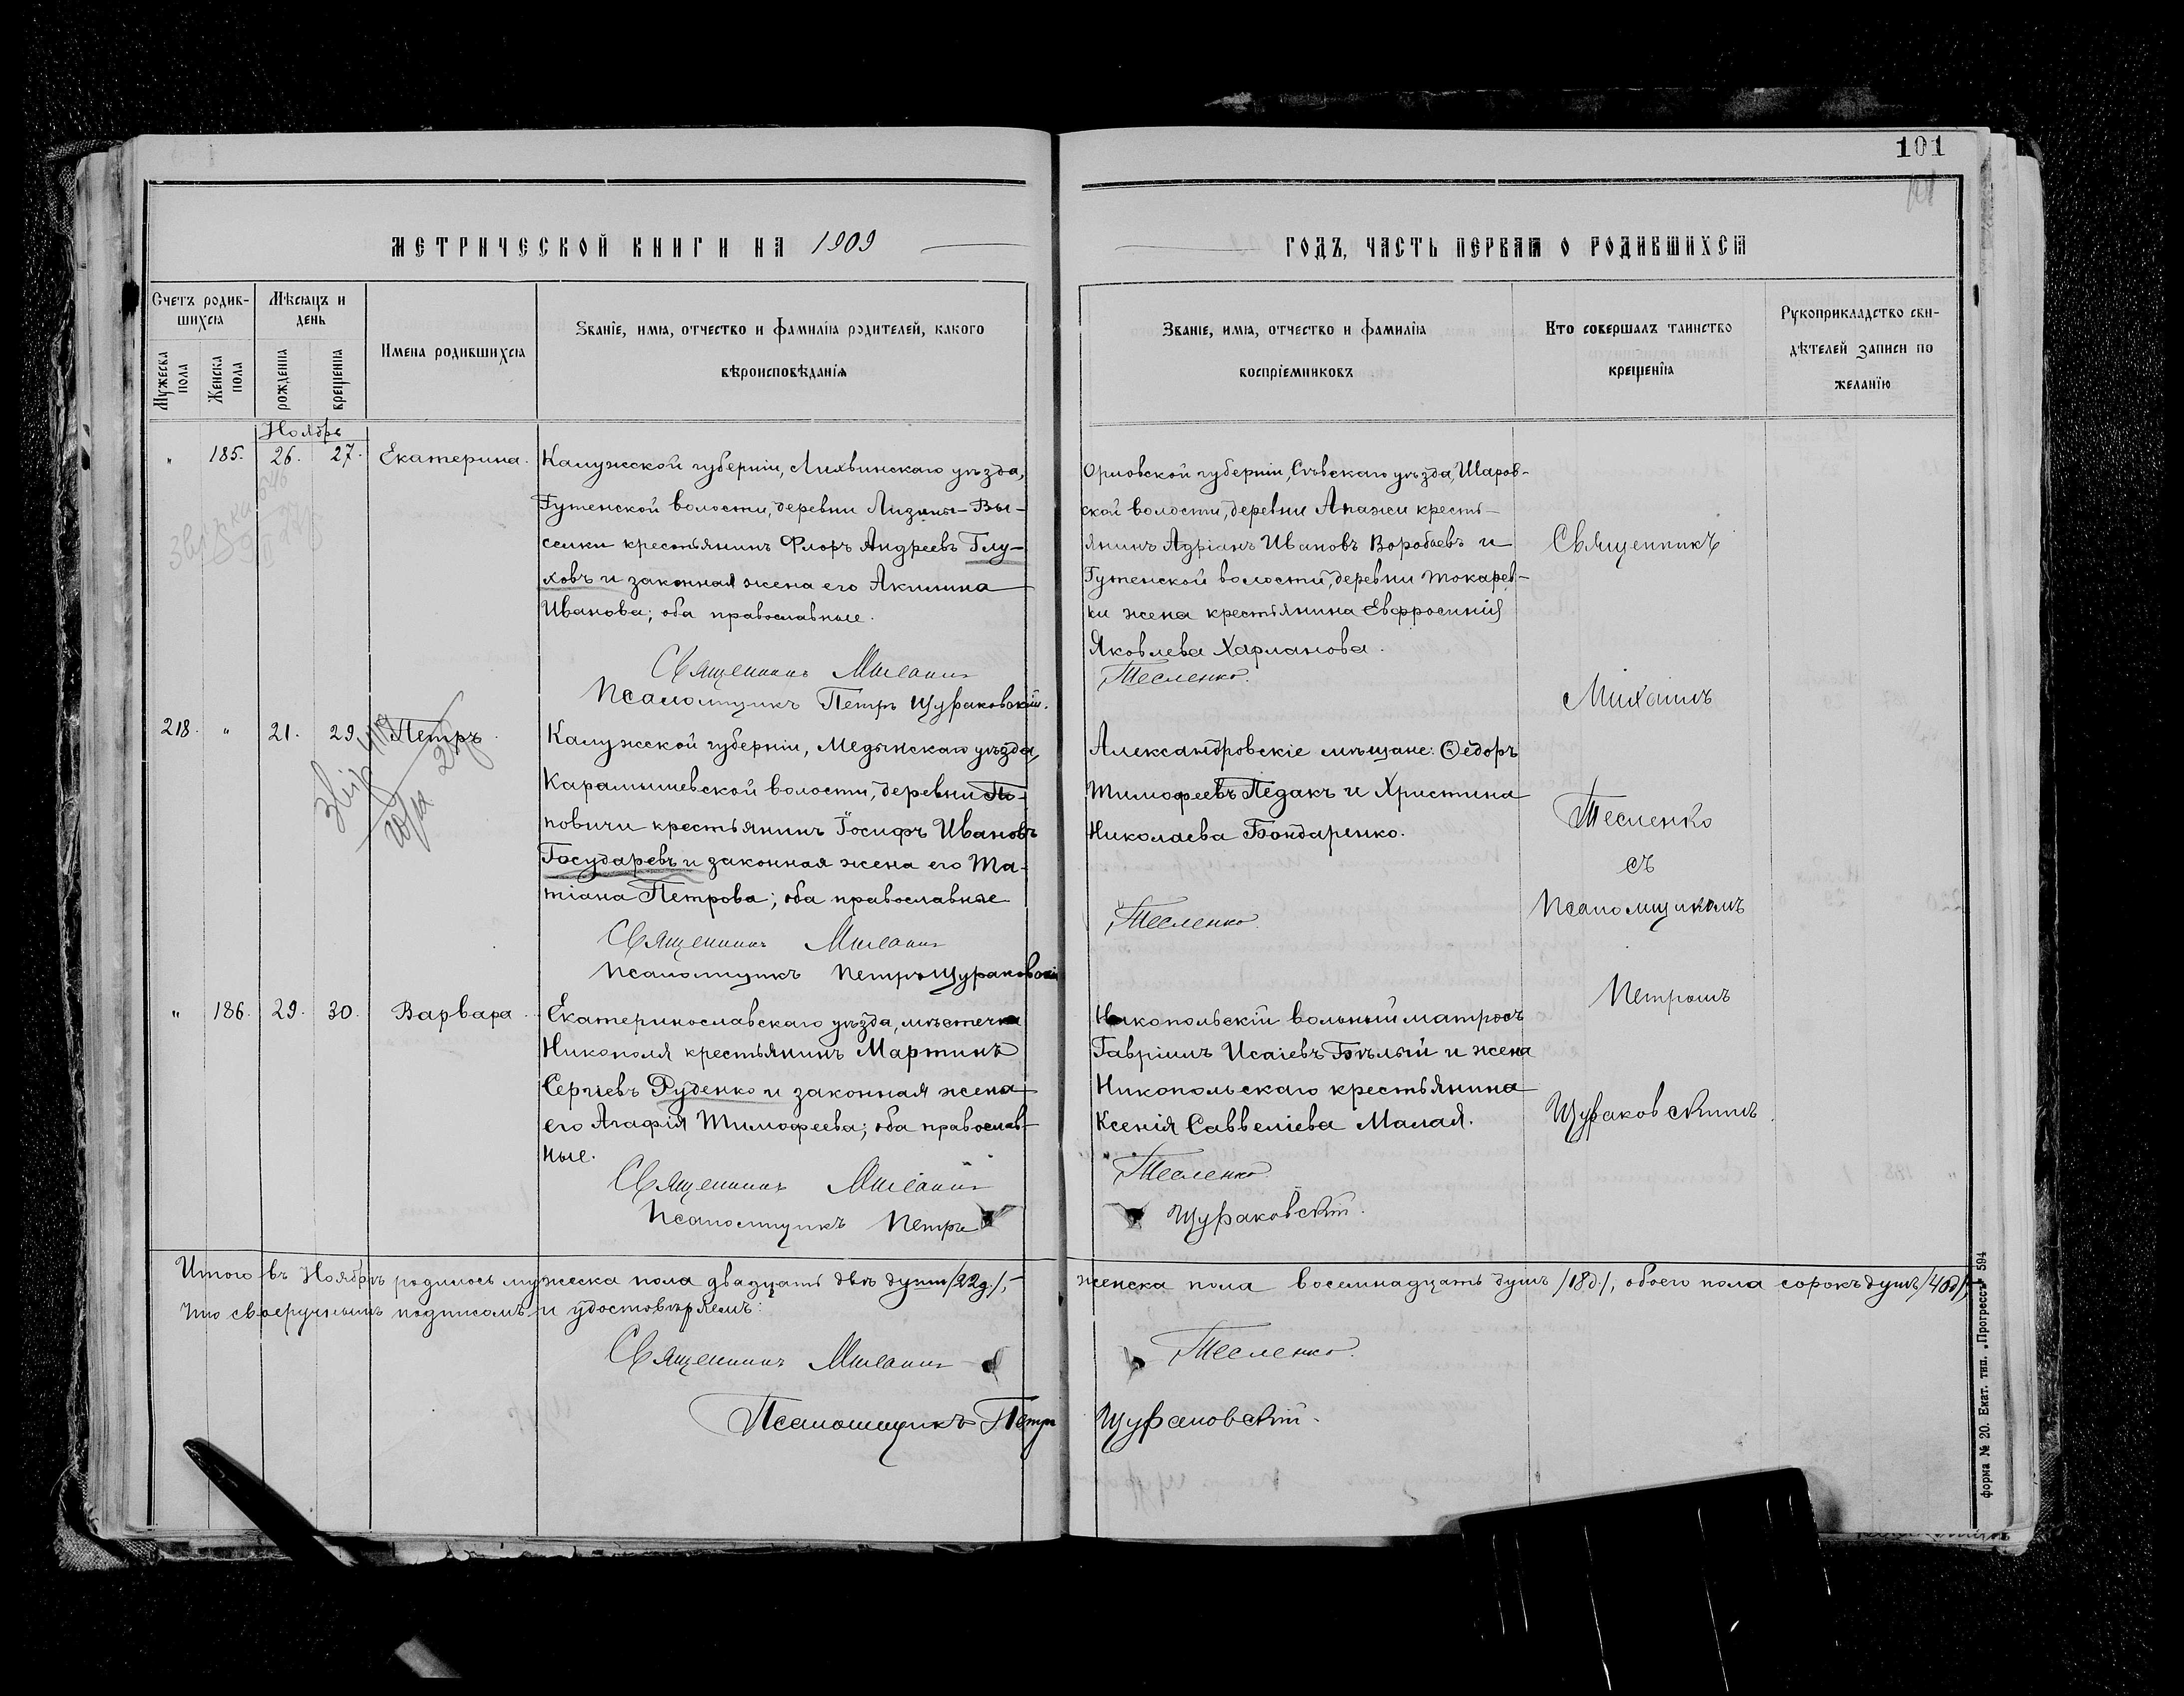 101
МЕТРИЧЕСКОЙ КНИГИ НА 1909
ГОДЪ, ЧАСТЬ ПЕРВАЯ О РОДИВШИХСЯ
Счетъ родив-
шихся
Мѣсяцъ и
день
Мужеска
пола
Женска
пола
рожденія
крещенія
Имена родившихся
Званіе, имя, отчество и фамилія родителей, какого
вѣроисповѣданія
Званіе, имя, отчество и фамилія
воспріемниковъ
Кто совершалъ таинство
крещенія
Рукоприкладство сви-
дѣтелей записи по
желанію
Ноябрь
" 185. 26. 27. Екатерина.
Калужской губерніи, Лихвинскаго уѣзда,
деревни
селки крестьянинъ Флоръ Андреевъ Глу-
ховъ и законная жена его Акилина
Иванова; оба православные.
Священникъ Михаилъ
Псаломщикъ Петръ Щураковскій.
Орловской губерніи, Сѣвскаго уѣзда, Шаров-
ской волости, деревни Апажи кресть-
янинъ Адріанъ Ивановъ Воробьевъ и
волости, деревни Токарев-
ки жена крестьянина Евфросинія
Яковлева Харланова.
Тесленко.
218. " 21. 29. Петръ.
Калужской губерніи, Медынскаго уѣзда,
Карамышевской волости, деревни По-
повичи крестьянинъ Іосифъ Ивановъ
Государевъ и законная жена его Та-
тіана Петрова; оба православные
Священникъ Михаилъ
Псаломщикъ Петръ Щураковскій
Александровскіе мѣщане: Ѳедоръ
Тимофеевъ Педакъ и Христина
Николаева Бондаренко.
Тесленко.
" 186. 29. 30. Варвара.
Екатеринославскаго уѣзда, мѣстечка
Никополя крестьянинъ Мартинъ
Сергіевъ Руденко и законная жена
его Агафія Тимофеева; оба православ-
ные.
Священникъ Михаилъ
Псаломщикъ Петръ
Никопольскій вольный матросъ
Гавріилъ Исаіевъ Бѣлый и жена
Никопольскаго крестьянина
Ксенія Саввеліева Малая.
Тесленко.
Щураковскій.
Священникъ
Михаилъ
Тесленко
съ
Псаломщикомъ
Петромъ
Щураковскимъ.
Итого въ Ноябрѣ родилось мужеска пола двадцать двѣ души /22д./,- женска пола восемнадцать душъ /18д./, обоего пола сорокъ душъ /40д./,
что своеручнымъ подписомъ и удостовѣряемъ:
Священникъ Михаилъ Тесленко.
Псаломщикъ Петръ Щураковскій.
форма № 20. Екат. тип. „Прогрессъ" 594